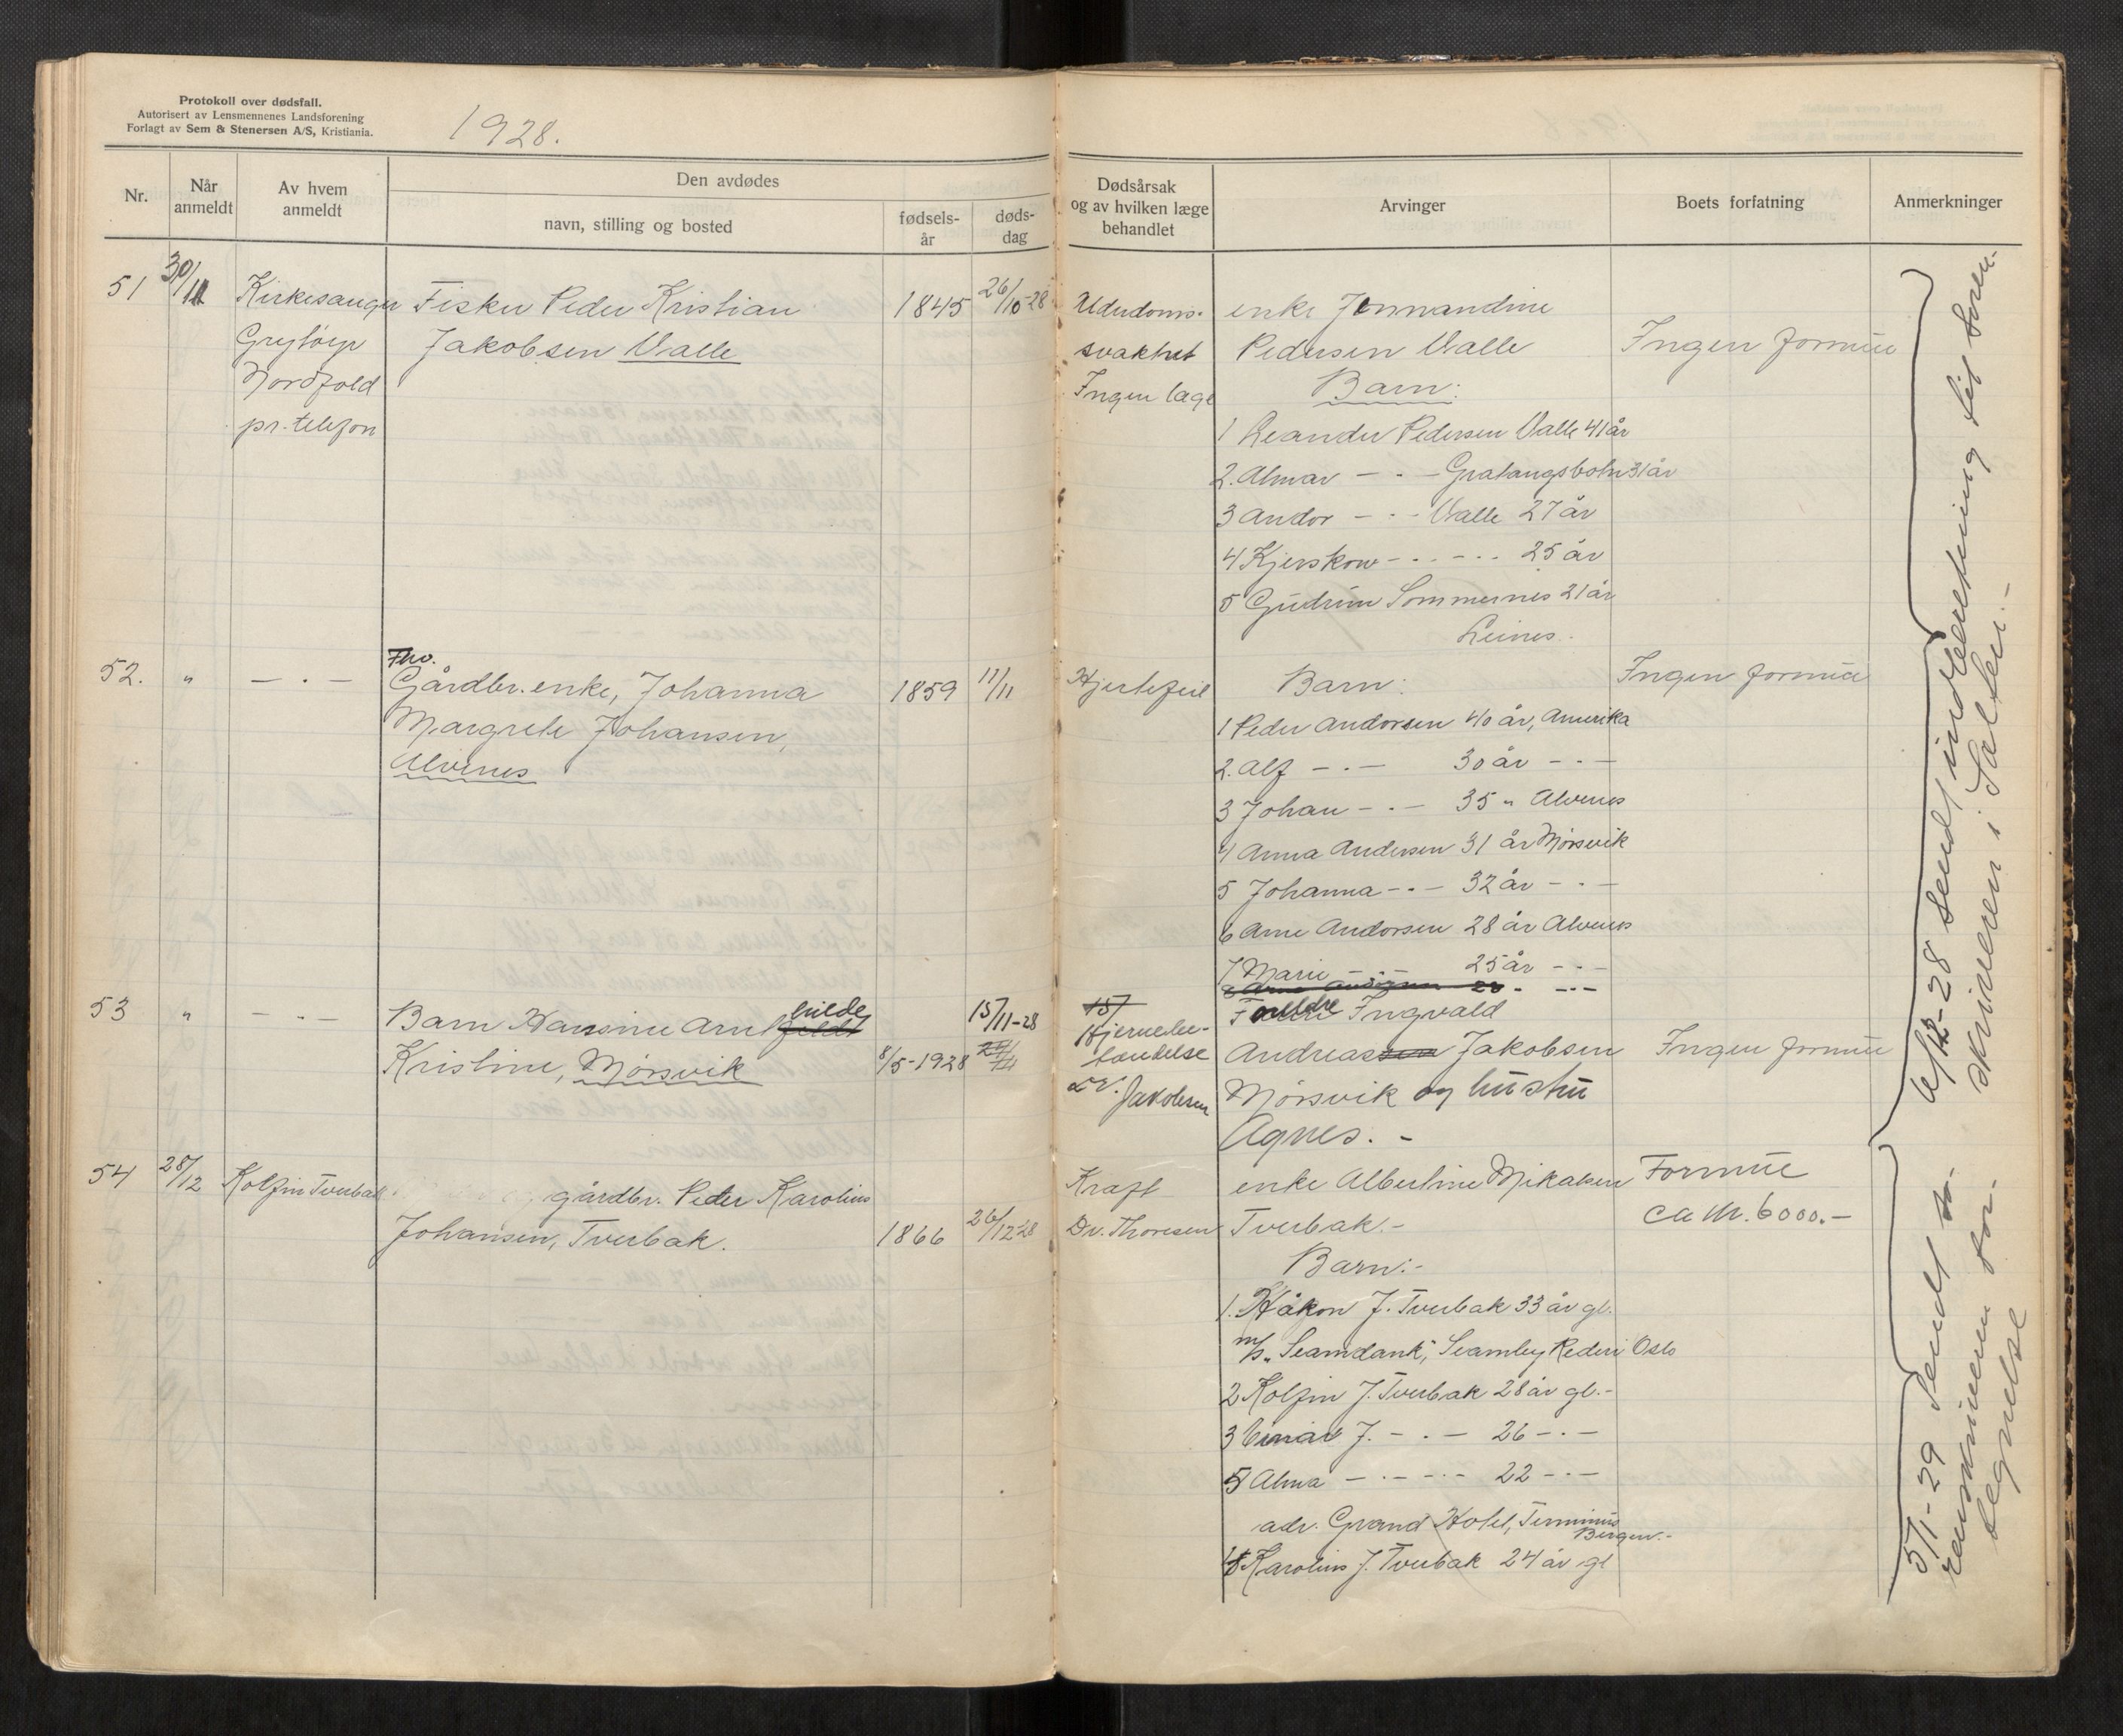 Protokoll over dødsfall.
Autorisert av Lensmennenes Landsforening
Forlagt av Sem & Stenersen A/S, Kristiania.
1928.
Nr.
Når anmeldt
Av hvem anmeldt
Den avdødes
navn, stilling og bosted
fødsels-år
døds-dag
Dødsårsak og av hvilken læge behandlet
Arvinger
Boets forfatning
Anmerkninger
51
30/11
Kirkesanger
Nordfold
pr. telefon
Fisker Peder Kristian
Jakobsen Valle
1845
26/10-28
Alderdoms-
svakhet
Ingen læge
enke
Pedersen Valle
Barn:
1 Leander Pedersen Valle 41 år
2. Almar - " - Gratangsbotn 31 år
3 Andor - " - Valle 27 år
4 Kjerskow - " - - " 25 år
5 Gudrun Sommernes 21 år
Leines.
Ingen formue
52.
"
- " -
Fhv.
Gårdbr. enke, Johanna
Margrete Johansen,
Alvenes
1859
11/11
Hjertefeil
Barn:
1 Peder Andorsen 40 år, Amerika
2. Alf - " - 30 år - " -
3 Johan - " - 35 " Alvenes
4 Anna Andersen 31 år Mørsvik
5 Johanna - " - 32 år - " -
6 Arne Andorsen 28 år Alvenes
7 Marie - " - 25 år - " -
Ingen formue
53
"
- " -
Barn Hansine Arnhilde
Kristine, Mørsvik
8/5-1928
15/11-28
15/
Hjernebe-
tændelse
Dr. Jakobsen
Foreldre Ingvald
Andreassen Jakobsen
Mørsvik og hustru
Agnes. -
Ingen formue
6/12-28 Sendt indberetning til Soren-
skriveren i Salten. -
54
28/12
Kolfin Tverbak
gårdbr. Peder Karolius
Johansen, Tverbak.
1866
26/12-28
Kraft
Dr. Thoresen
enke Albertine Mikalsen
Tverbak. -
Barn: -
1. Håkon J. Tverbak 33 år gl.
m/s. "Scandank", Rederi Oslo
2 Kolfin J. Tverbak 28 år gl. -
3 Einar J. - " - 26 - " -
5 Alma - " - - " - 22 - " -
adr. Grand Hotel, Terminus
Bergen. -
4 Karolius J. Tverbak 24 år gl
Formue
ca kr. 6000. -
5/1-29 Sendt so-
renskriveren for-
tegnelse